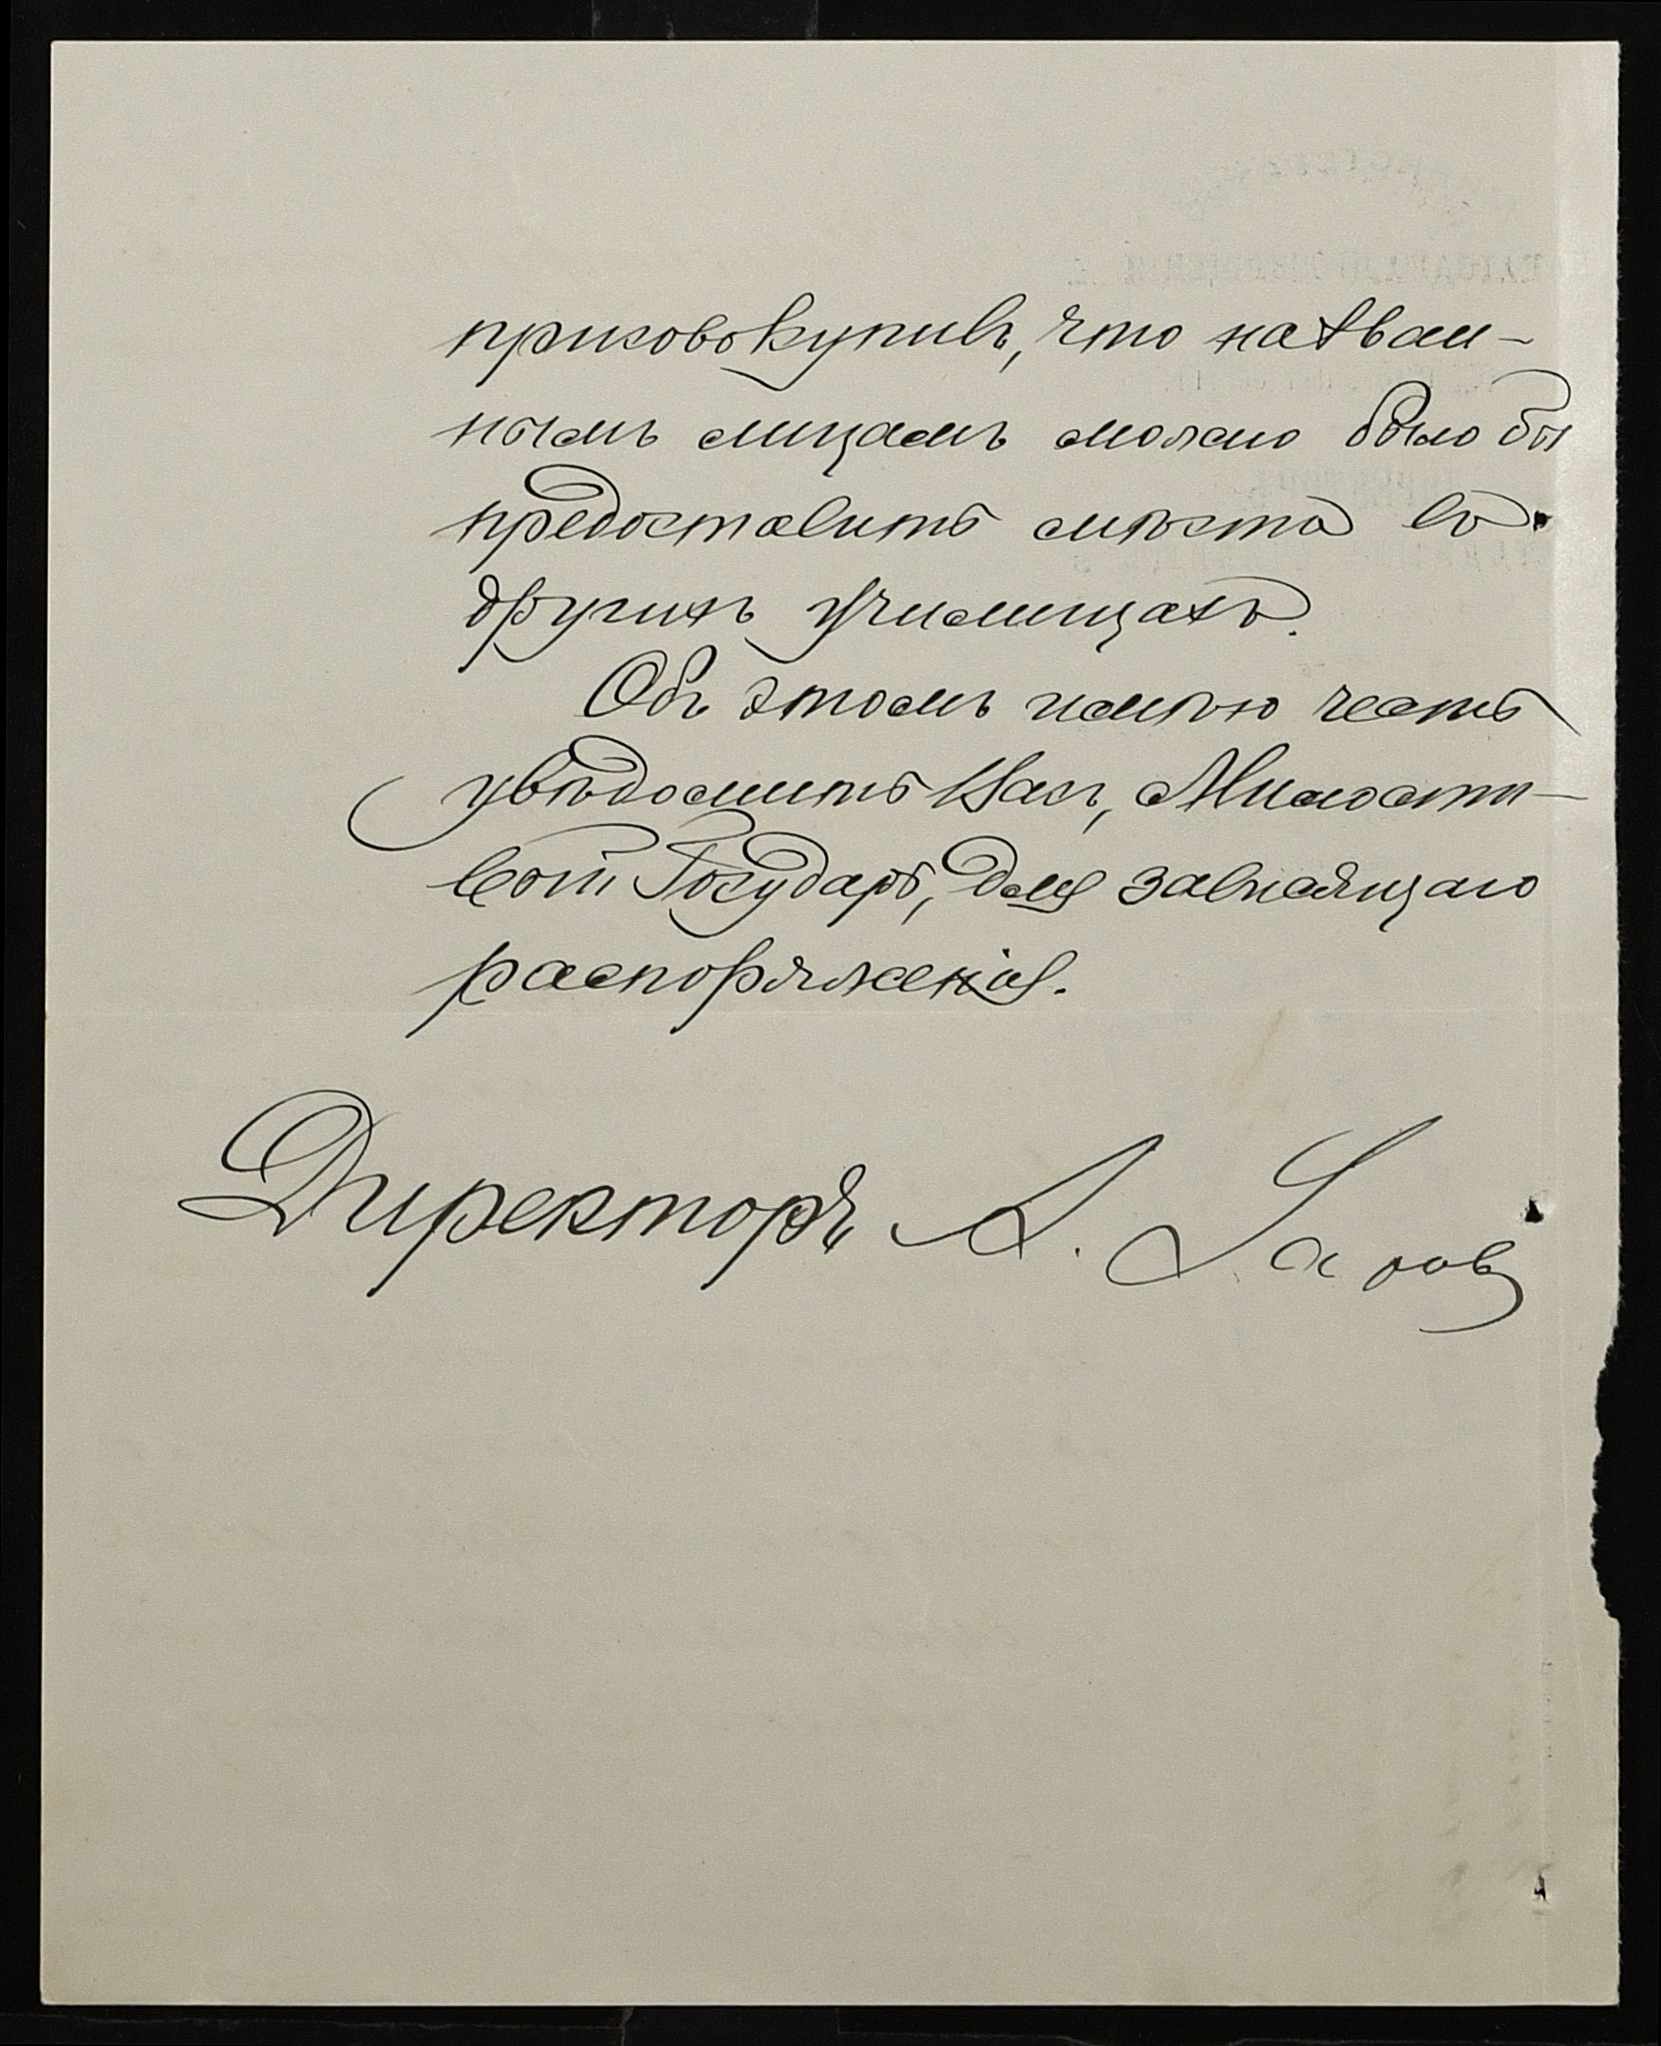 присовокупивъ, что назван-
нымъ лицамъ можно было бы
предоставить мѣста въ
другихъ училищахъ.
Объ этомъ имѣю честь
увѣдомить Васъ, Милости-
вый Государь, для зависящаго
распоряженія.
Директоръ А.